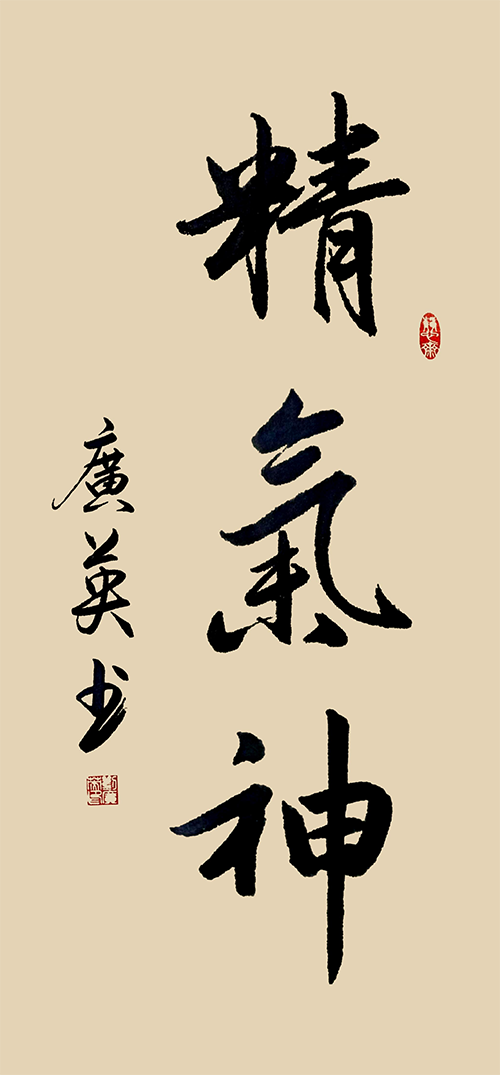 精氣神
廣英书